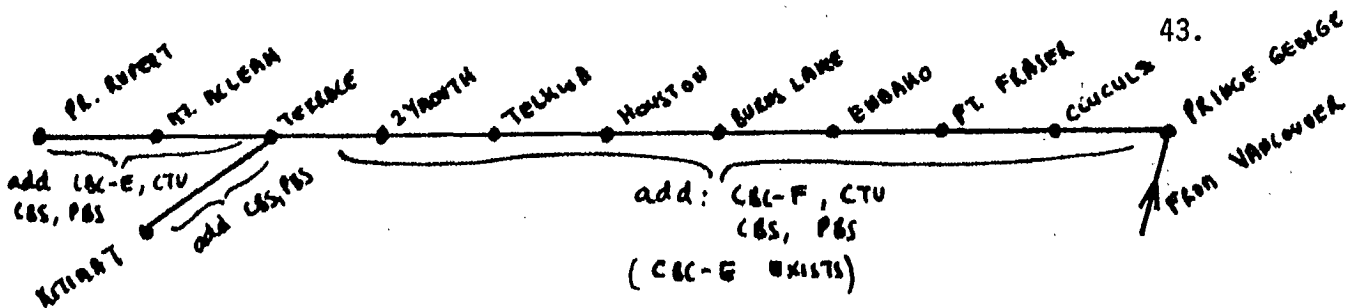 43.
PR. RUPERT
MT. MCLEAN
TERRACE
TELKWA
HOUSTON
BURNS LAKE
ENDAKO
FT. FRASER
CLUCULZ
PRINCE GEORGE
FROM VANCOUVER
add CBC-E, CTV
CBS, PBS
add CBS, PBS
KITIMAT
add: CBC-F, CTV
CBS, PBS
(CBC-E EXISTS)